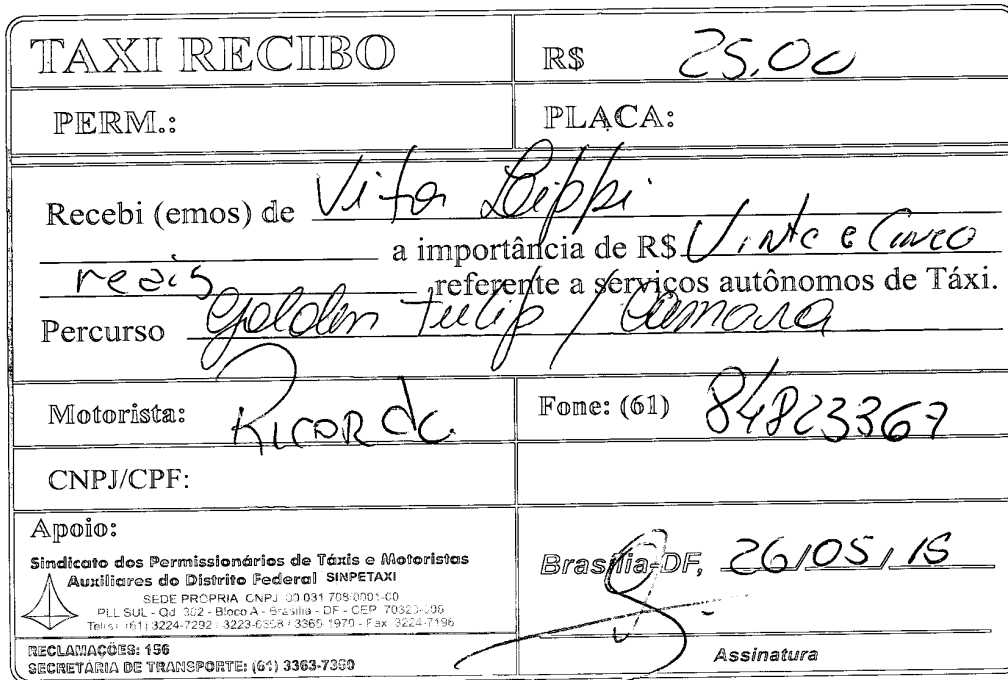 TAXI RECIBO R$ 25,00
PERM.: PLACA:
Recebi (emos) de Vitor Lippi
a importância de R$ Vinte e Cinco
reais referente a serviços autônomos de Táxi.
Percurso Golden Tulip / Camara
Motorista: Ricardo Fone: (61) 84823367
CNPJ/CPF:
Apoio:
Sindicato dos Permissionários de Táxis e Motoristas
Auxiliares do Distrito Federal SINPETAXI
SEDE PROPRIA CNPJ 00 031 708/0001-00
PLL SUL - Qd 302 - Bloco A - Brasília - DF - CEP
Tel's: (61) 3224-7292 / 3223-6358 / 3365-1970 - Fax 3224-7196
Brasília-DF, 26/05/15
RECLAMAÇÕES: 156
SECRETARIA DE TRANSPORTE: (61) 3363-7350
Assinatura